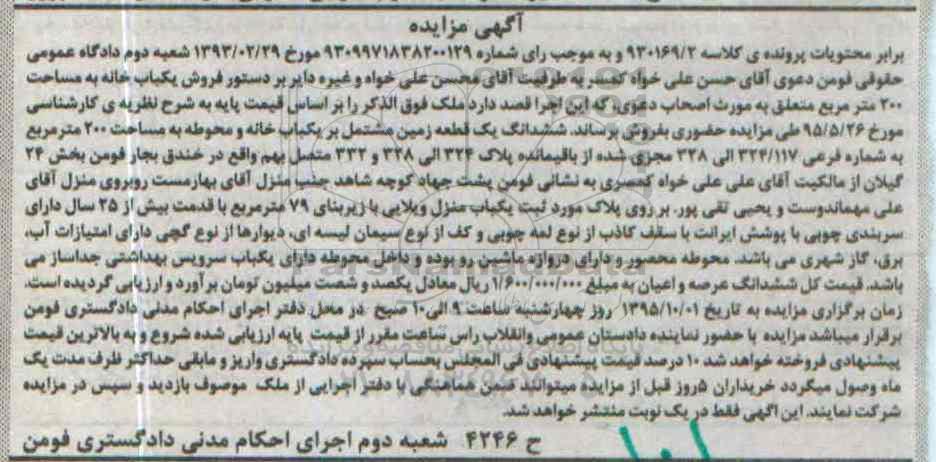 آگهی مزایده
برابر محتویات پرونده ی کلاسه ۹۳۰۱۶۹/۲ و به موجب رای شماره ۹۳۰۹۹۷۱۸۳۸۲۰۰۱۲۹ مورخ ۱۳۹۳/۰۲/۲۹ شعبه دوم دادگاه عمومی
حقوقی فومن دعوی آقای حسن علی خواه کمسر به طرفیت آقای محسن علی خواه و غیره دایر بر دستور فروش یکباب خانه به مساحت
۲۰۰ متر مربع متعلق به مورث اصحاب دعوی، که این اجرا قصد دارد ملک فوق الذکر را بر اساس قیمت پایه به شرح نظریه ی کارشناسی
مورخ ۹۵/۵/۲۶ طی مزایده حضوری بفروش برساند. ششدانگ یک قطعه زمین مشتمل بر یکباب خانه و محوطه به مساحت ۲۰۰ مترمربع
به شماره فرعی ۳۲۴/۱۱۷ الی ۳۳۸ مجزی شده از باقیمانده پلاک ۳۲۴ الی ۳۳۸ و ۳۳۲ متصل بهم واقع در خندق بجار فومن بخش ۲۴
گیلان از مالکیت آقای علی علی خواه کمسری به نشانی فومن پشت جهاد کوچه شاهد جنب منزل آقای بهارمست روبروی منزل آقای
علی مهماندوست و یحیی تقی پور. بر روی پلاک مورد ثبت یکباب منزل ویلایی با زیربنای ۷۹ مترمربع با قدمت بیش از ۲۵ سال دارای
سربندی چوبی با پوشش ایرانت با سقف کاذب از نوع لمه چوبی و کف از نوع سیمان لیسه ای، دیوارها از نوع گچی دارای امتیازات آب،
برق، گاز شهری می باشد. محوطه محصور و دارای دروازه ماشین رو بوده و داخل محوطه دارای یکباب سرویس بهداشتی جداساز می
باشد. قیمت کل ششدانگ عرصه و اعیان به مبلغ ۱/۶۰۰/۰۰۰/۰۰۰ ریال معادل یکصد و شصت میلیون تومان برآورد و ارزیابی گردیده است.
زمان برگزاری مزایده به تاریخ ۱۳۹۵/۱۰/۰۱ روز چهارشنبه ساعت ۹ الی۱۰ صبح در محل دفتر اجرای احکام مدنی دادگستری فومن
برقرار میباشد مزایده با حضور نماینده دادستان عمومی وانقلاب راس ساعت مقرر از قیمت پایه ارزیابی شده شروع و به بالاترین قیمت
پیشنهادی فروخته خواهد شد ۱۰ درصد قیمت پیشنهادی فی المجلس بحساب سپرده دادگستری واریز و مابقی حداکثر ظرف مدت یک
ماه وصول میگردد خریداران ۵روز قبل از مزایده میتوانند ضمن هماهنگی با دفتر اجرایی از ملک موصوف بازدید و سپس در مزایده
شرکت نمایند. این اگهی فقط در یک نوبت منتشر خواهد شد.
ح ۴۲۴۶ شعبه دوم اجرای احکام مدنی دادگستری فومن
ParsNamadData